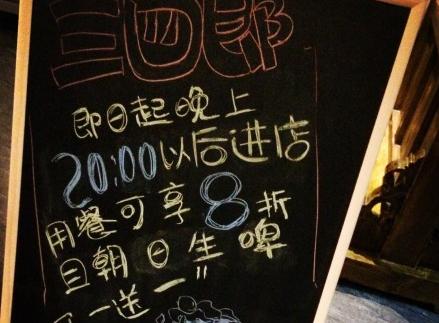 三四郎
即日起晚上
20:00以后进店
用餐可享8折
旦朝日生啤
一送一"